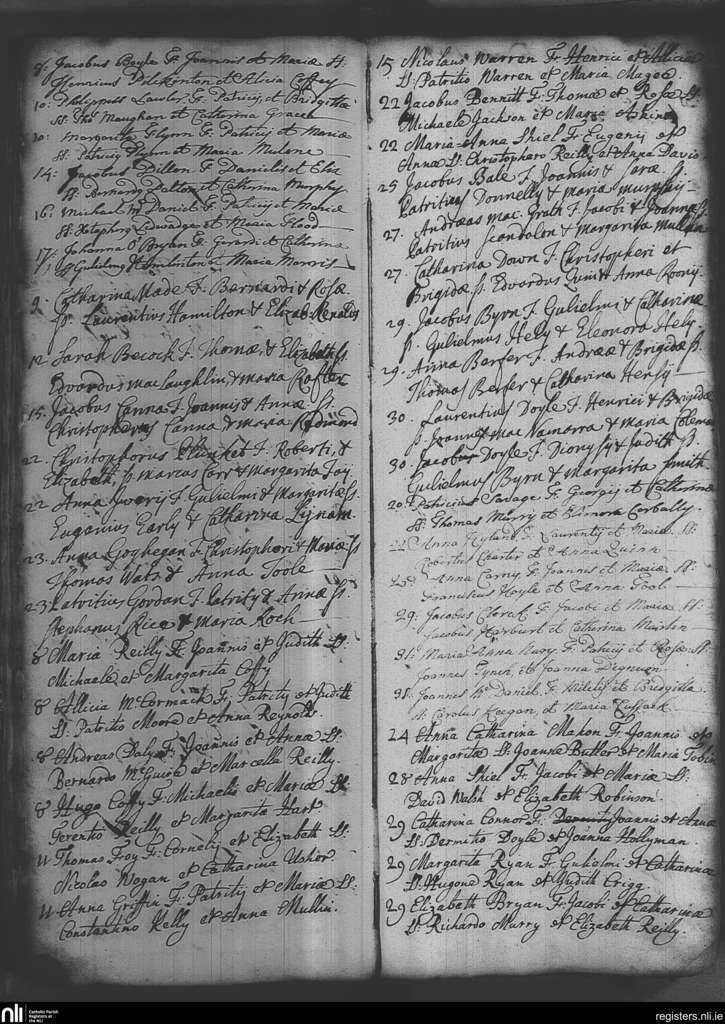 8. Jacobus Boyle F. Joannis et Mariæ St.
Henricus et Alicia Coffey
10. Philippus Lawler F. Patricij et Bridgitta
St. Thos Maughan et Catherina Grace
10. Margarita Flynn F. Patricij et Mariæ
St. Patricij Flynn et Maria Malone
14. Jacobus Dillon F. Danielis et Eliz
St. Bernard Dalton et Catherina Murphy
16. Michael McDaniel F. Patricij et Mariæ
St. et Maria Flood
17. Johanna O Bryan F. Gerardi et Catherina
St. Gulielmy Hamilinton et Maria Morris
9. Catharina Made F. Bernardi & Rosæ
Sp. Laurentius Hamilton & Elizab. Renalds
12 Sarah Becock F. Thomæ, & Elizabeth Sp.
Edvardus mac Laughlin, & maria Rafter
15. Jacobus Canna F. Joannis & Annæ Sp.
Christopherus Canna & maria Redmond
22. Christophorus F. Roberti, &
Elizabeth, Sp. marcus Carr & Margarita Foy
22 Anna F. Gulielmi & Margaritæ Sp.
Eugenius Early & Catharina Lynam
23. Anna Goghegan F. Christopheri & Mariæ Sp
Thomas Wats & Anna Toole
23 Patritius Gordan F. Patritij & Annæ Sp.
Stephanus Rice & Maria Roch
8 Maria Reilly F. Joannis et Judith Ls.
Michaele et Margarita Coffy
8 Allicia McCormack F. Patritij et Judith
Ls. Patritio Moore et Anna Reynolds.
8 Andreas Daly F. Joannis et Annæ Ls.
Bernardo McGuire et Marcella Reilly.
8 Hugo Coffy F. Michaelis et Mariæ Ls
Terentio Reilly et Margarita Hart
11 Thomas Troy F. Cornelij et Elizabeth Ls.
Nicolao Wogan et Catharina Usher.
11 Anna Griffin F. Patritij et Mariæ Ls.
Constantino Kelly et Anna Mullin.
15 Nicolaus Warren F. Henrici et Alliciæ
Ls. Patritio Warren et Maria Magee
22 Jacobus Bennitt F. Thomæ et Rosæ Ls.
Michaele Jackson et
22 Maria-Anna Shiel F. Eugenij et
Annæ Ls. Christophero Reilly et Anna Davis
25 Jacobus Bale F. Joannis & Saræ Sp.
Patritius Donnelly & maria murphy
27. Andræas mac Grath F. Jacobi & Joannæ Sp.
Patritius Scandelon & Margarita
27. Catharina Down F. Christopheri et
Brigidæ Sp. Edvardus Quin & Anna Roony
29. Jacobus Byrn F. Gulielmus & Catharinæ
Sp. Gulielmus Hely & Eleonora Hely
29. Anna F. Andræa & Brigidæ Sp.
Thomas & Catharina
30. Laurentius Doyle F. Henrici & Brigidæ
Sp. Joannes mac Namarra & maria Coleman
30 Jacobus Doyle F. Dionysij & Judith Sp.
Gulielmus Byrn & Margarita Smith.
20. Patricius Savage F. Georgij et Catherina
St. Thomas Murry et Elinora Corbally.
22 Anna Hyland F. Laurentij et Maria St.
Robertus et Anna Quinn
25. Anna Carny F. Joannis et Mariæ St.
Franciscus Hoyle et Anna Pool
29. Jacobus F. Jacobi et Maria St.
Jacobus et Catherina
31. Maria Anna F. Patricij et Rosæ St.
Joannes Lynch et Joanna
31. Joannes McDaniel F. et Bridgitta
St. Carolus Keegan et Maria Cussack
24 Anna Catharina Mahon F. Joannis et
Margarita Ls. Joanne Butler et Maria Tobin
28 Anna Shiel F. Jacobi et Mariæ Ls.
David Walsh et Elizabeth Robinson.
29 Catharina Connor F. Joannis et Annæ
Ls. Dermitio Doyle et Joanna Hollyman.
29 Margarita Ryan F. Gulielmi et Catharinæ
Ls. Hugone Ryan et Judith Crigg.
29 Elizabeth Bryan F. Jacobi et Catharinæ
Ls. Richardo Murry et Elizabeth Reilly.
nli
Catholic Parish
Registers at
the NLI
registers.nli.ie